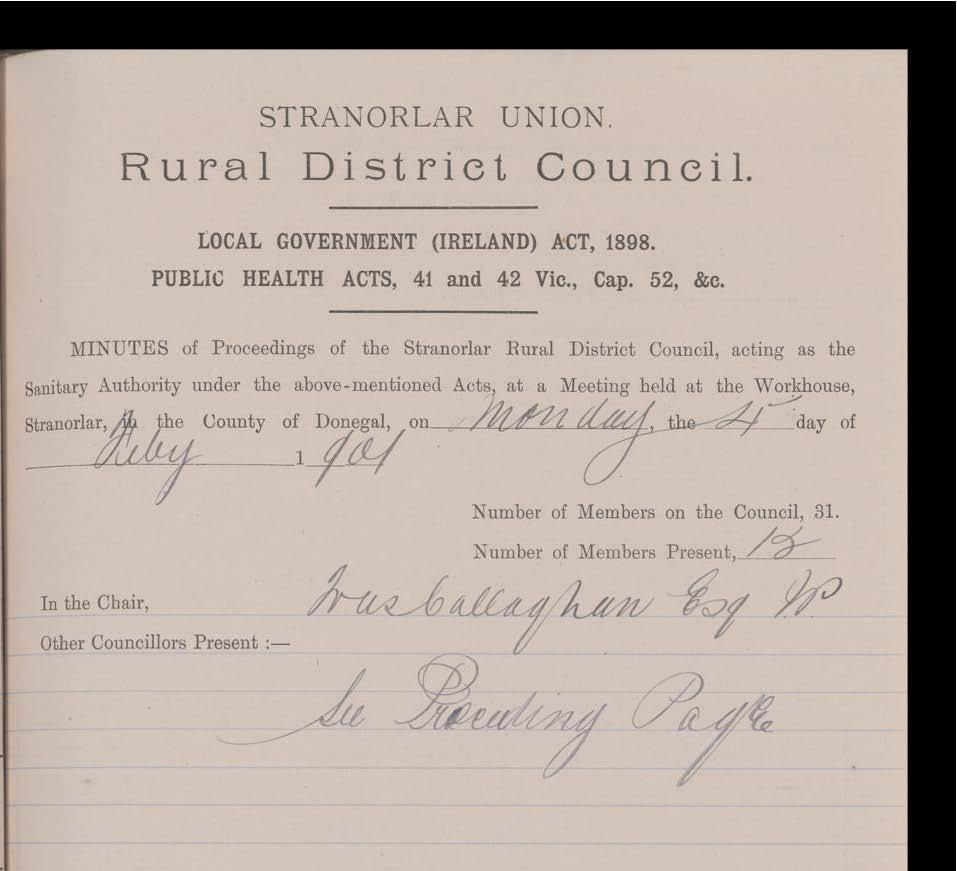 STRANORLAR UNION.
Rural District Council.
LOCAL GOVERNMENT (IRELAND) ACT, 1898.
PUBLIC HEALTH ACTS, 41 and 42 Vic., Cap. 52, &c.
MINUTES of Proceedings of the Stranorlar Rural District Council, acting as the
Sanitary Authority under the above-mentioned Acts, at a Meeting held at the Workhouse,
Stranorlar, in the County of Donegal, on Monday, the 4 day of
Feby 1901
Number of Members on the Council, 31.
Number of Members Present,
In the Chair, Callaghan Esq JP
Other Councillors Present :—
See Preceding Page